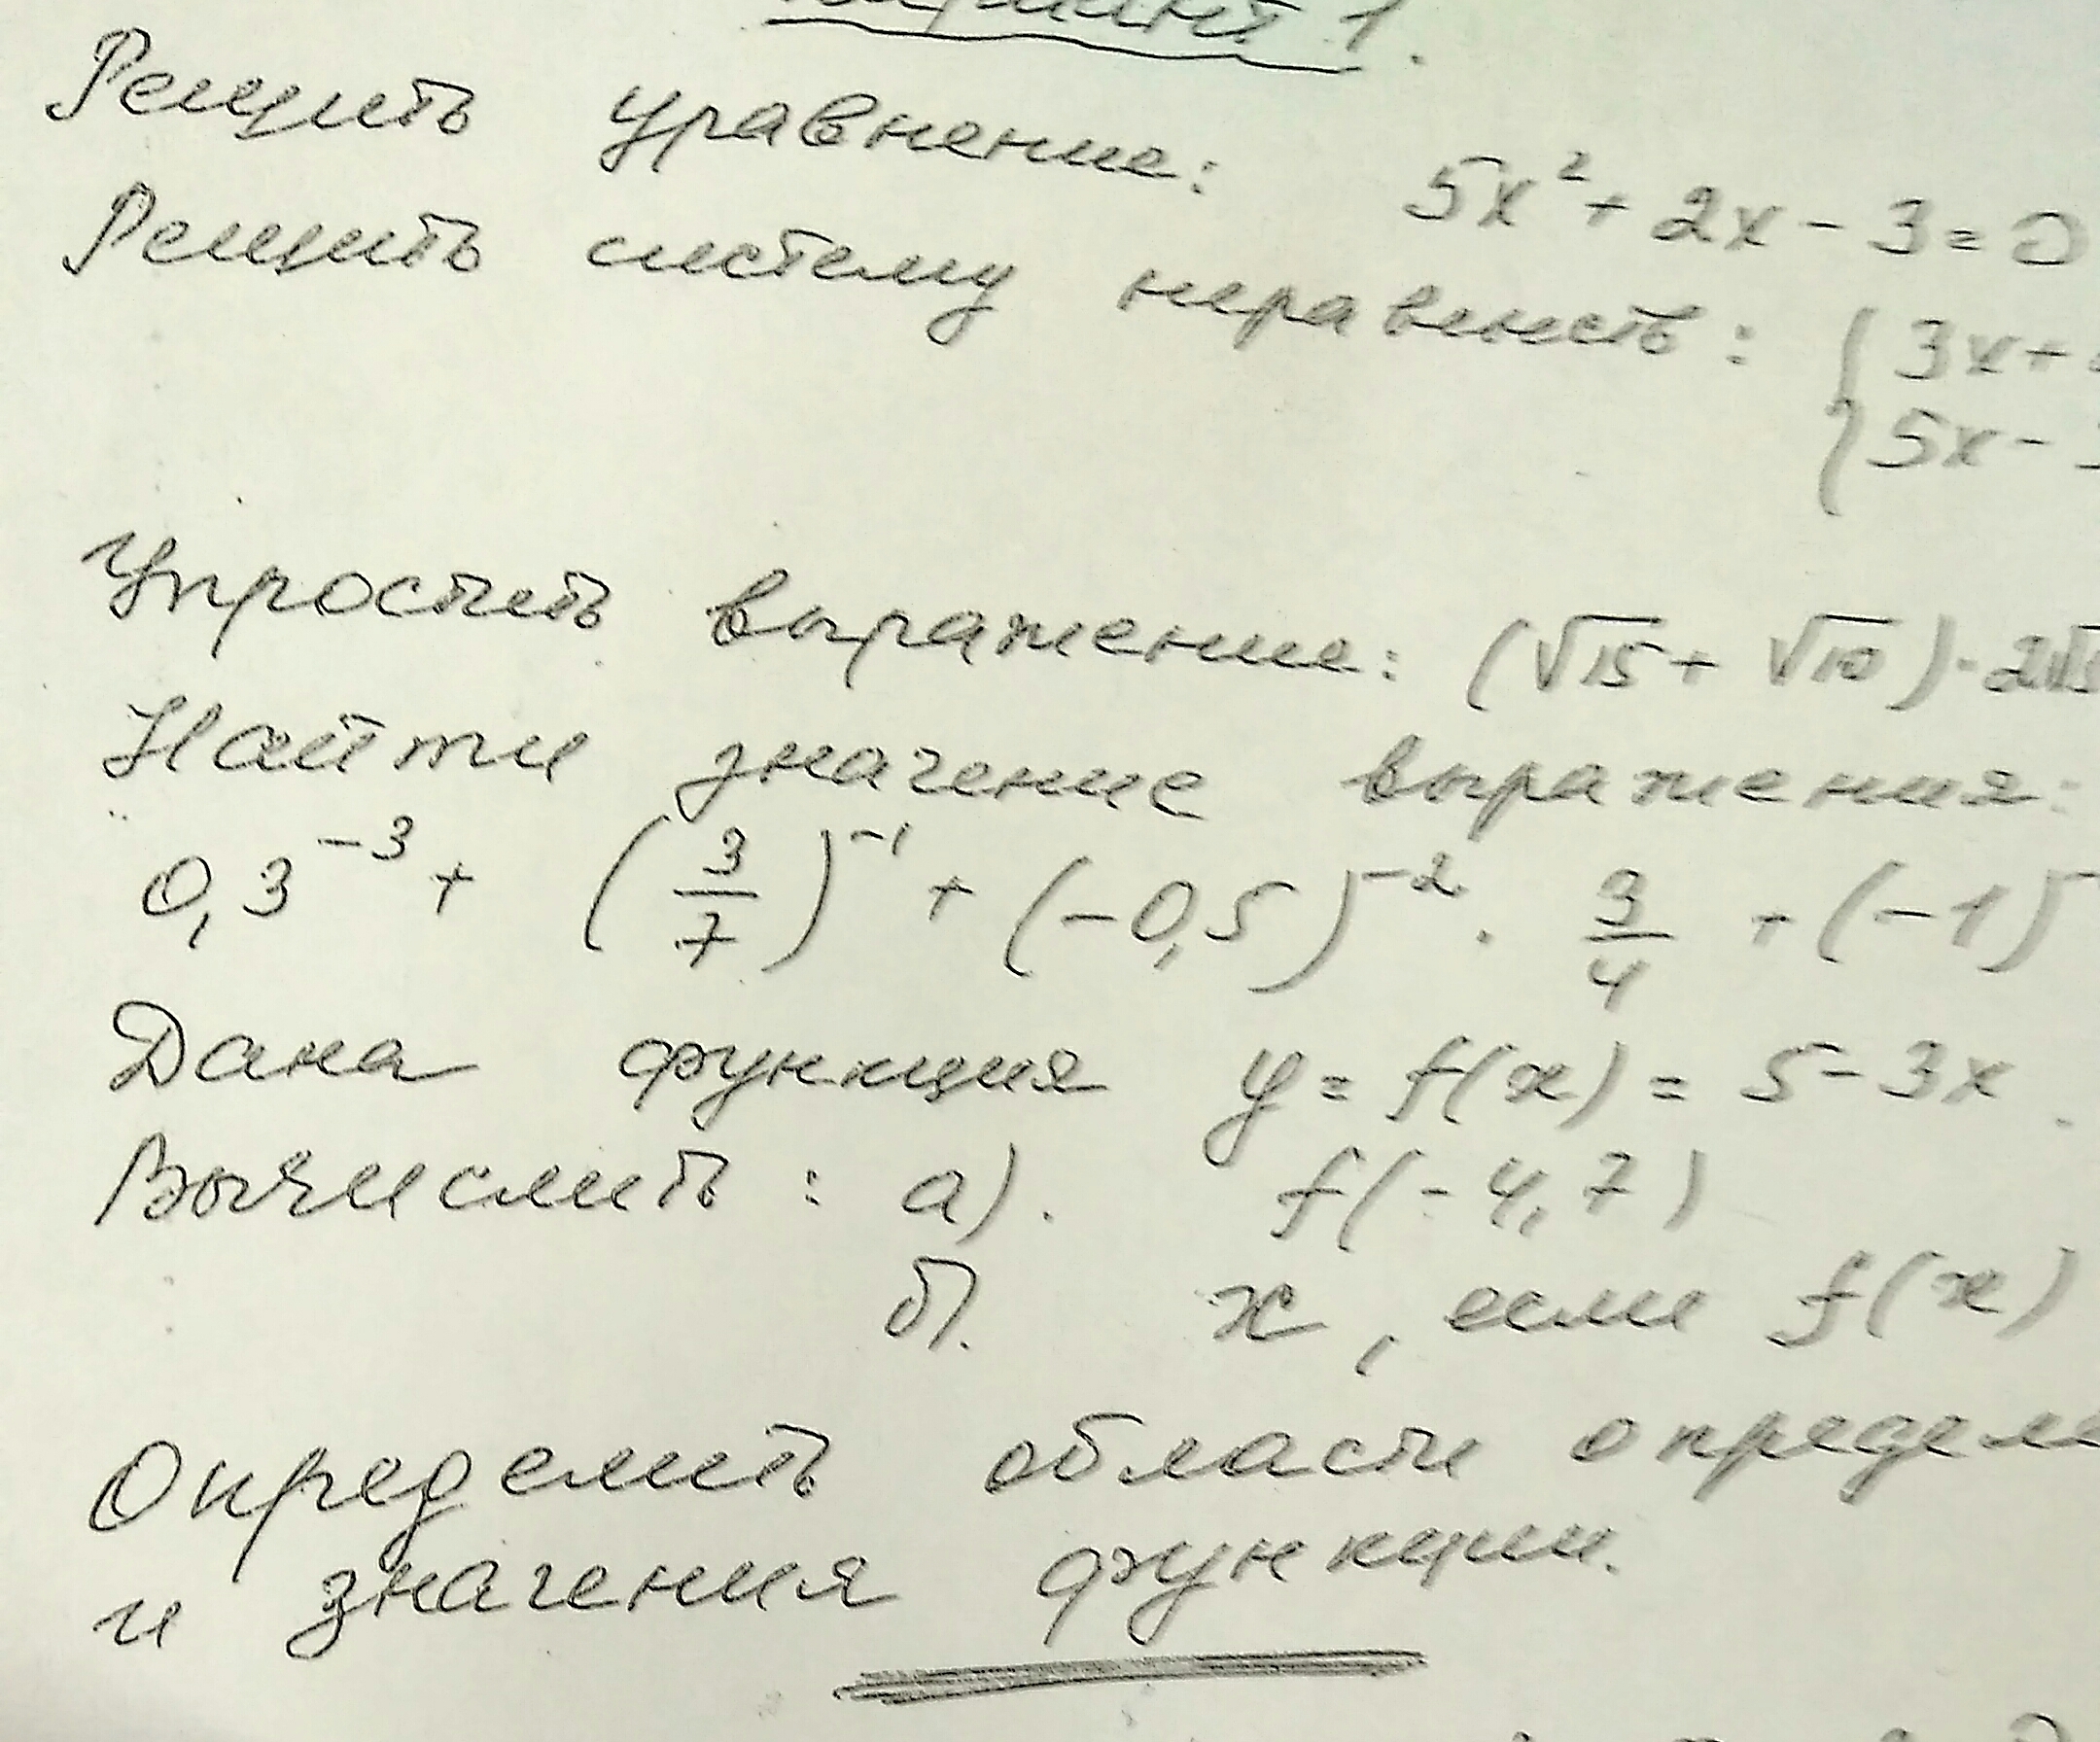 Вариант 1.
Решить уравнение: 5x² + 2x - 3 = 0
Решить систему неравенств: { 3x +
{ 5x -
Упростить выражение: (√15 + √10) · 2√5
Найти значение выражения:
0,3⁻³ + (3/7)⁻¹ + (-0,5)⁻² · 3/4 + (-1)⁻
Дана функция y = f(x) = 5 - 3x.
Вычислить: а). f(-4,7)
б). x, если f(x)
Определить области определе
и значения функции.